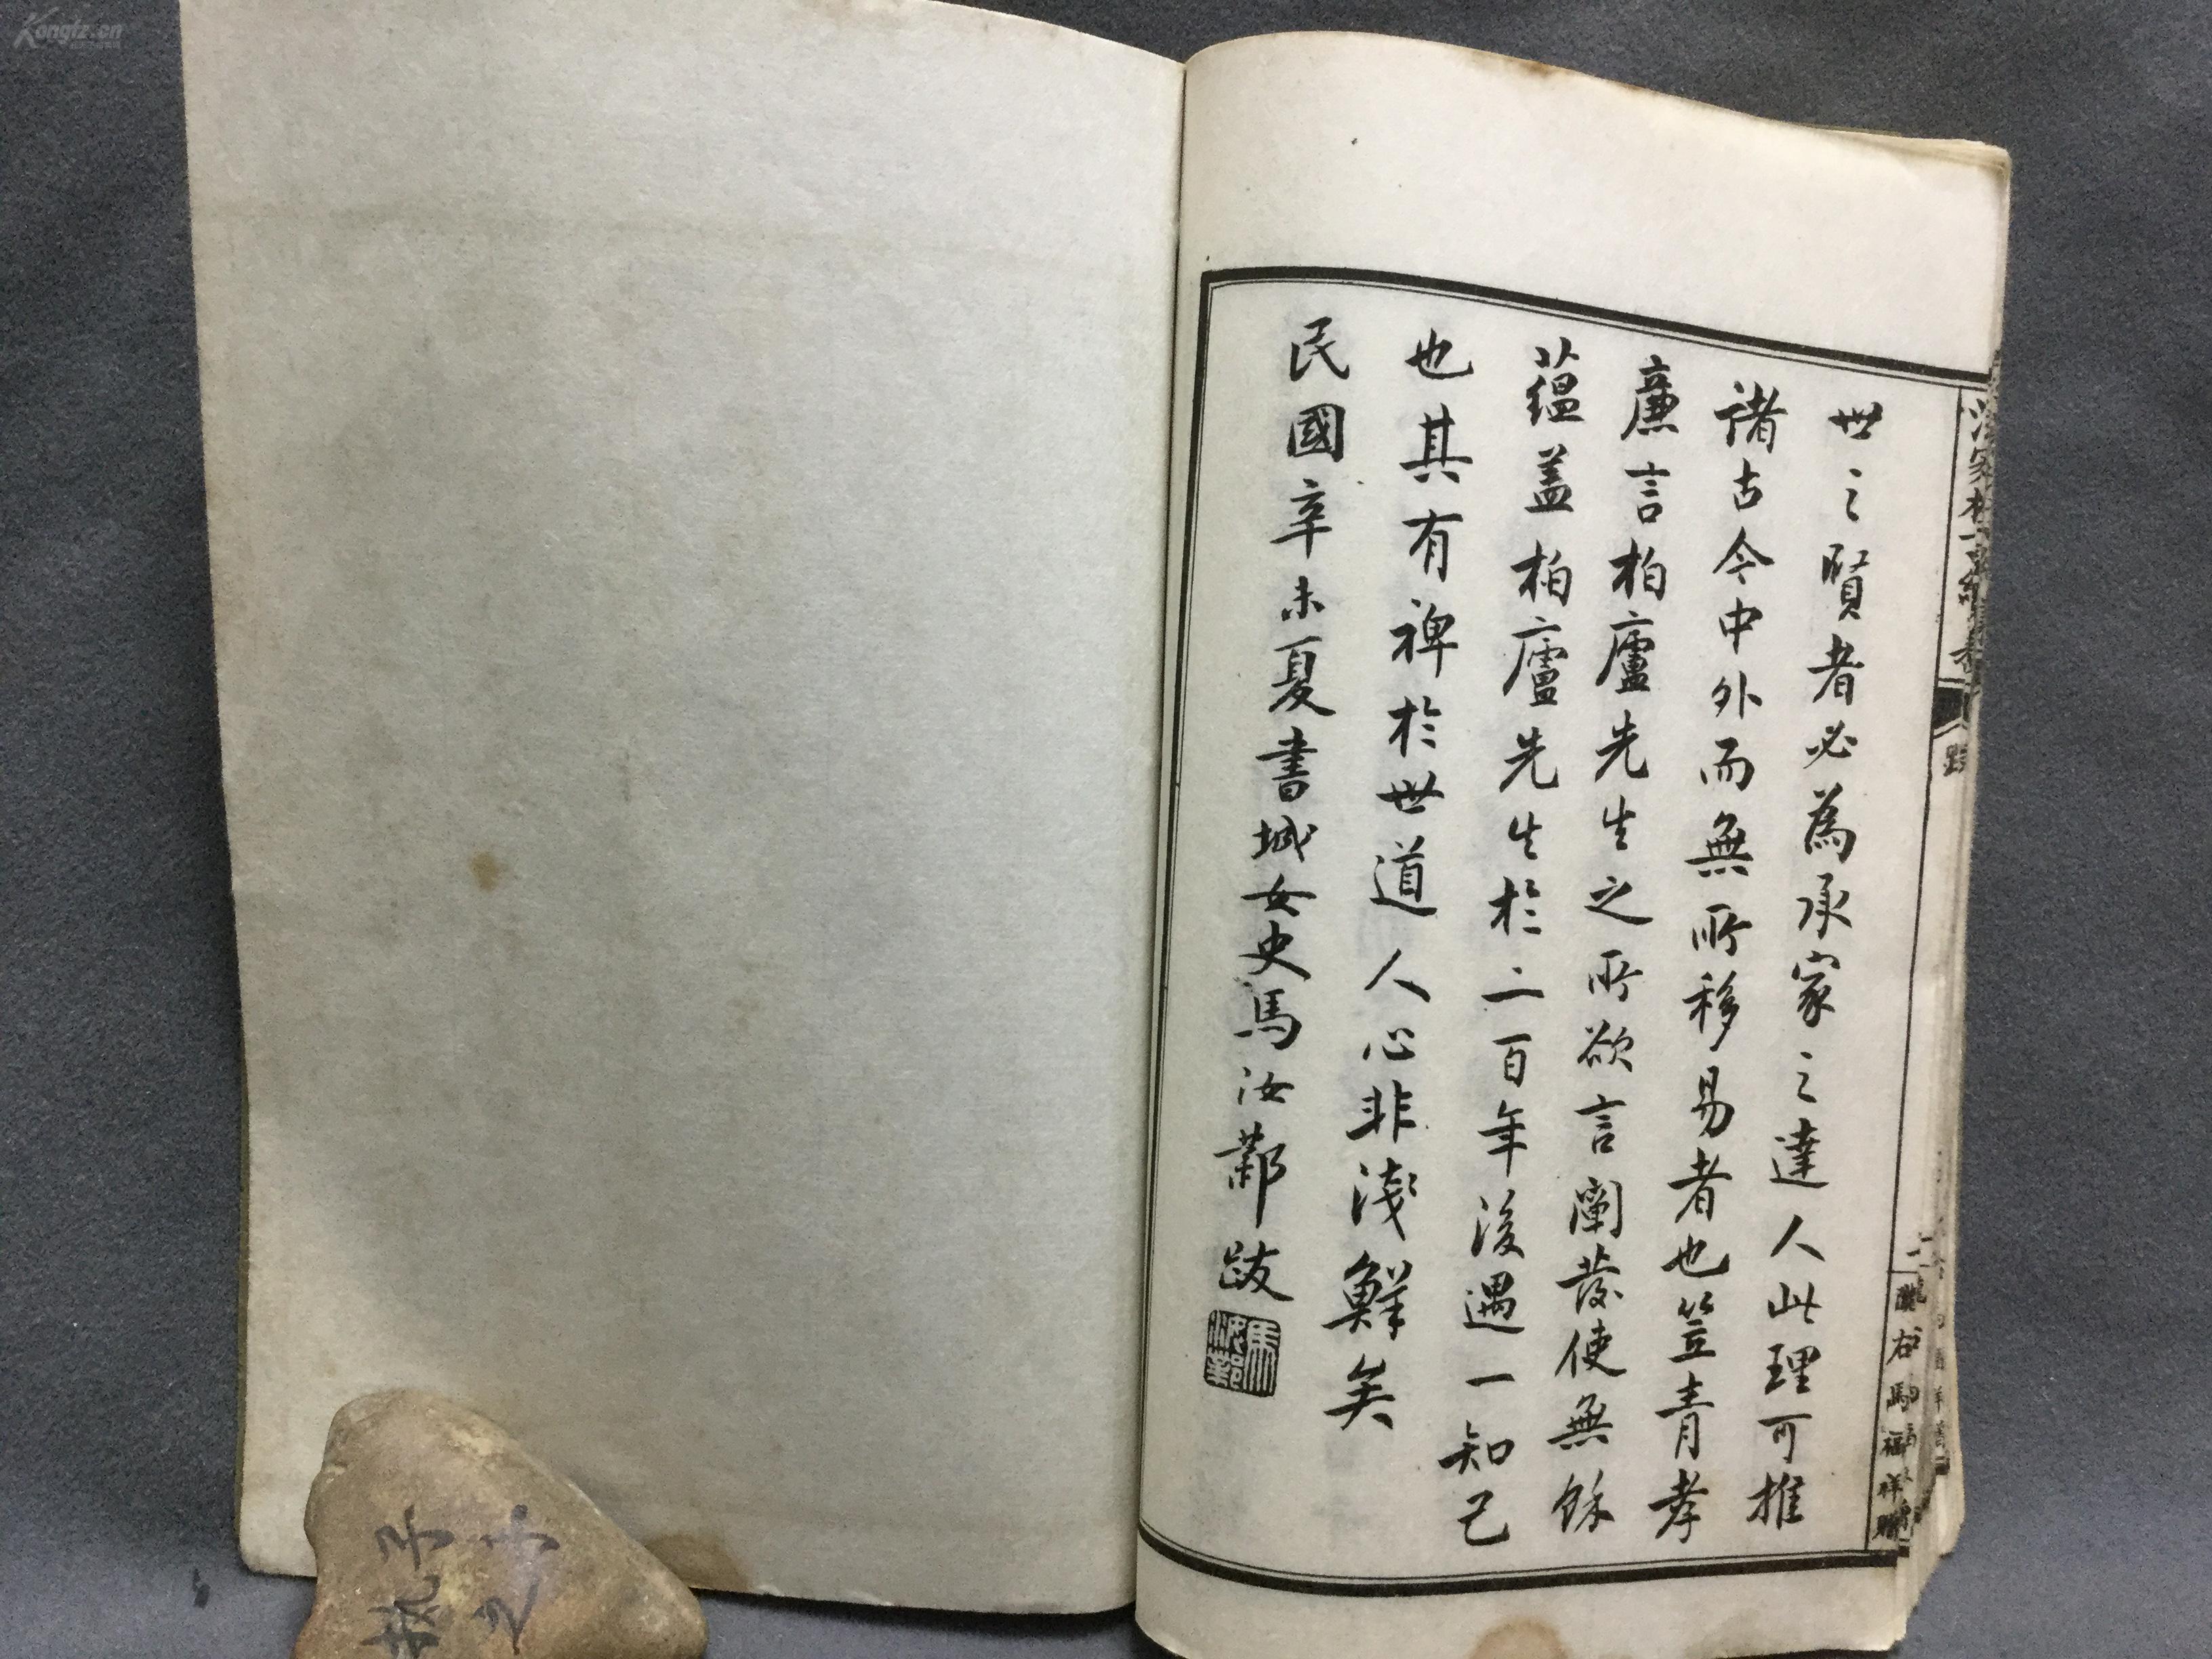 世之賢者必為承家之達人此理可推
諸古今中外而無所移易者也笠青孝
廉言柏廬先生之所欲言闡發使無餘
蘊蓋柏廬先生於二百年後遇一知己
也其有裨於世道人心非淺鮮矣
民國辛未夏書城女史馬汝鄴跋
跋
二
隴右馬福祥贈
執子
之手
Kongfz.cn